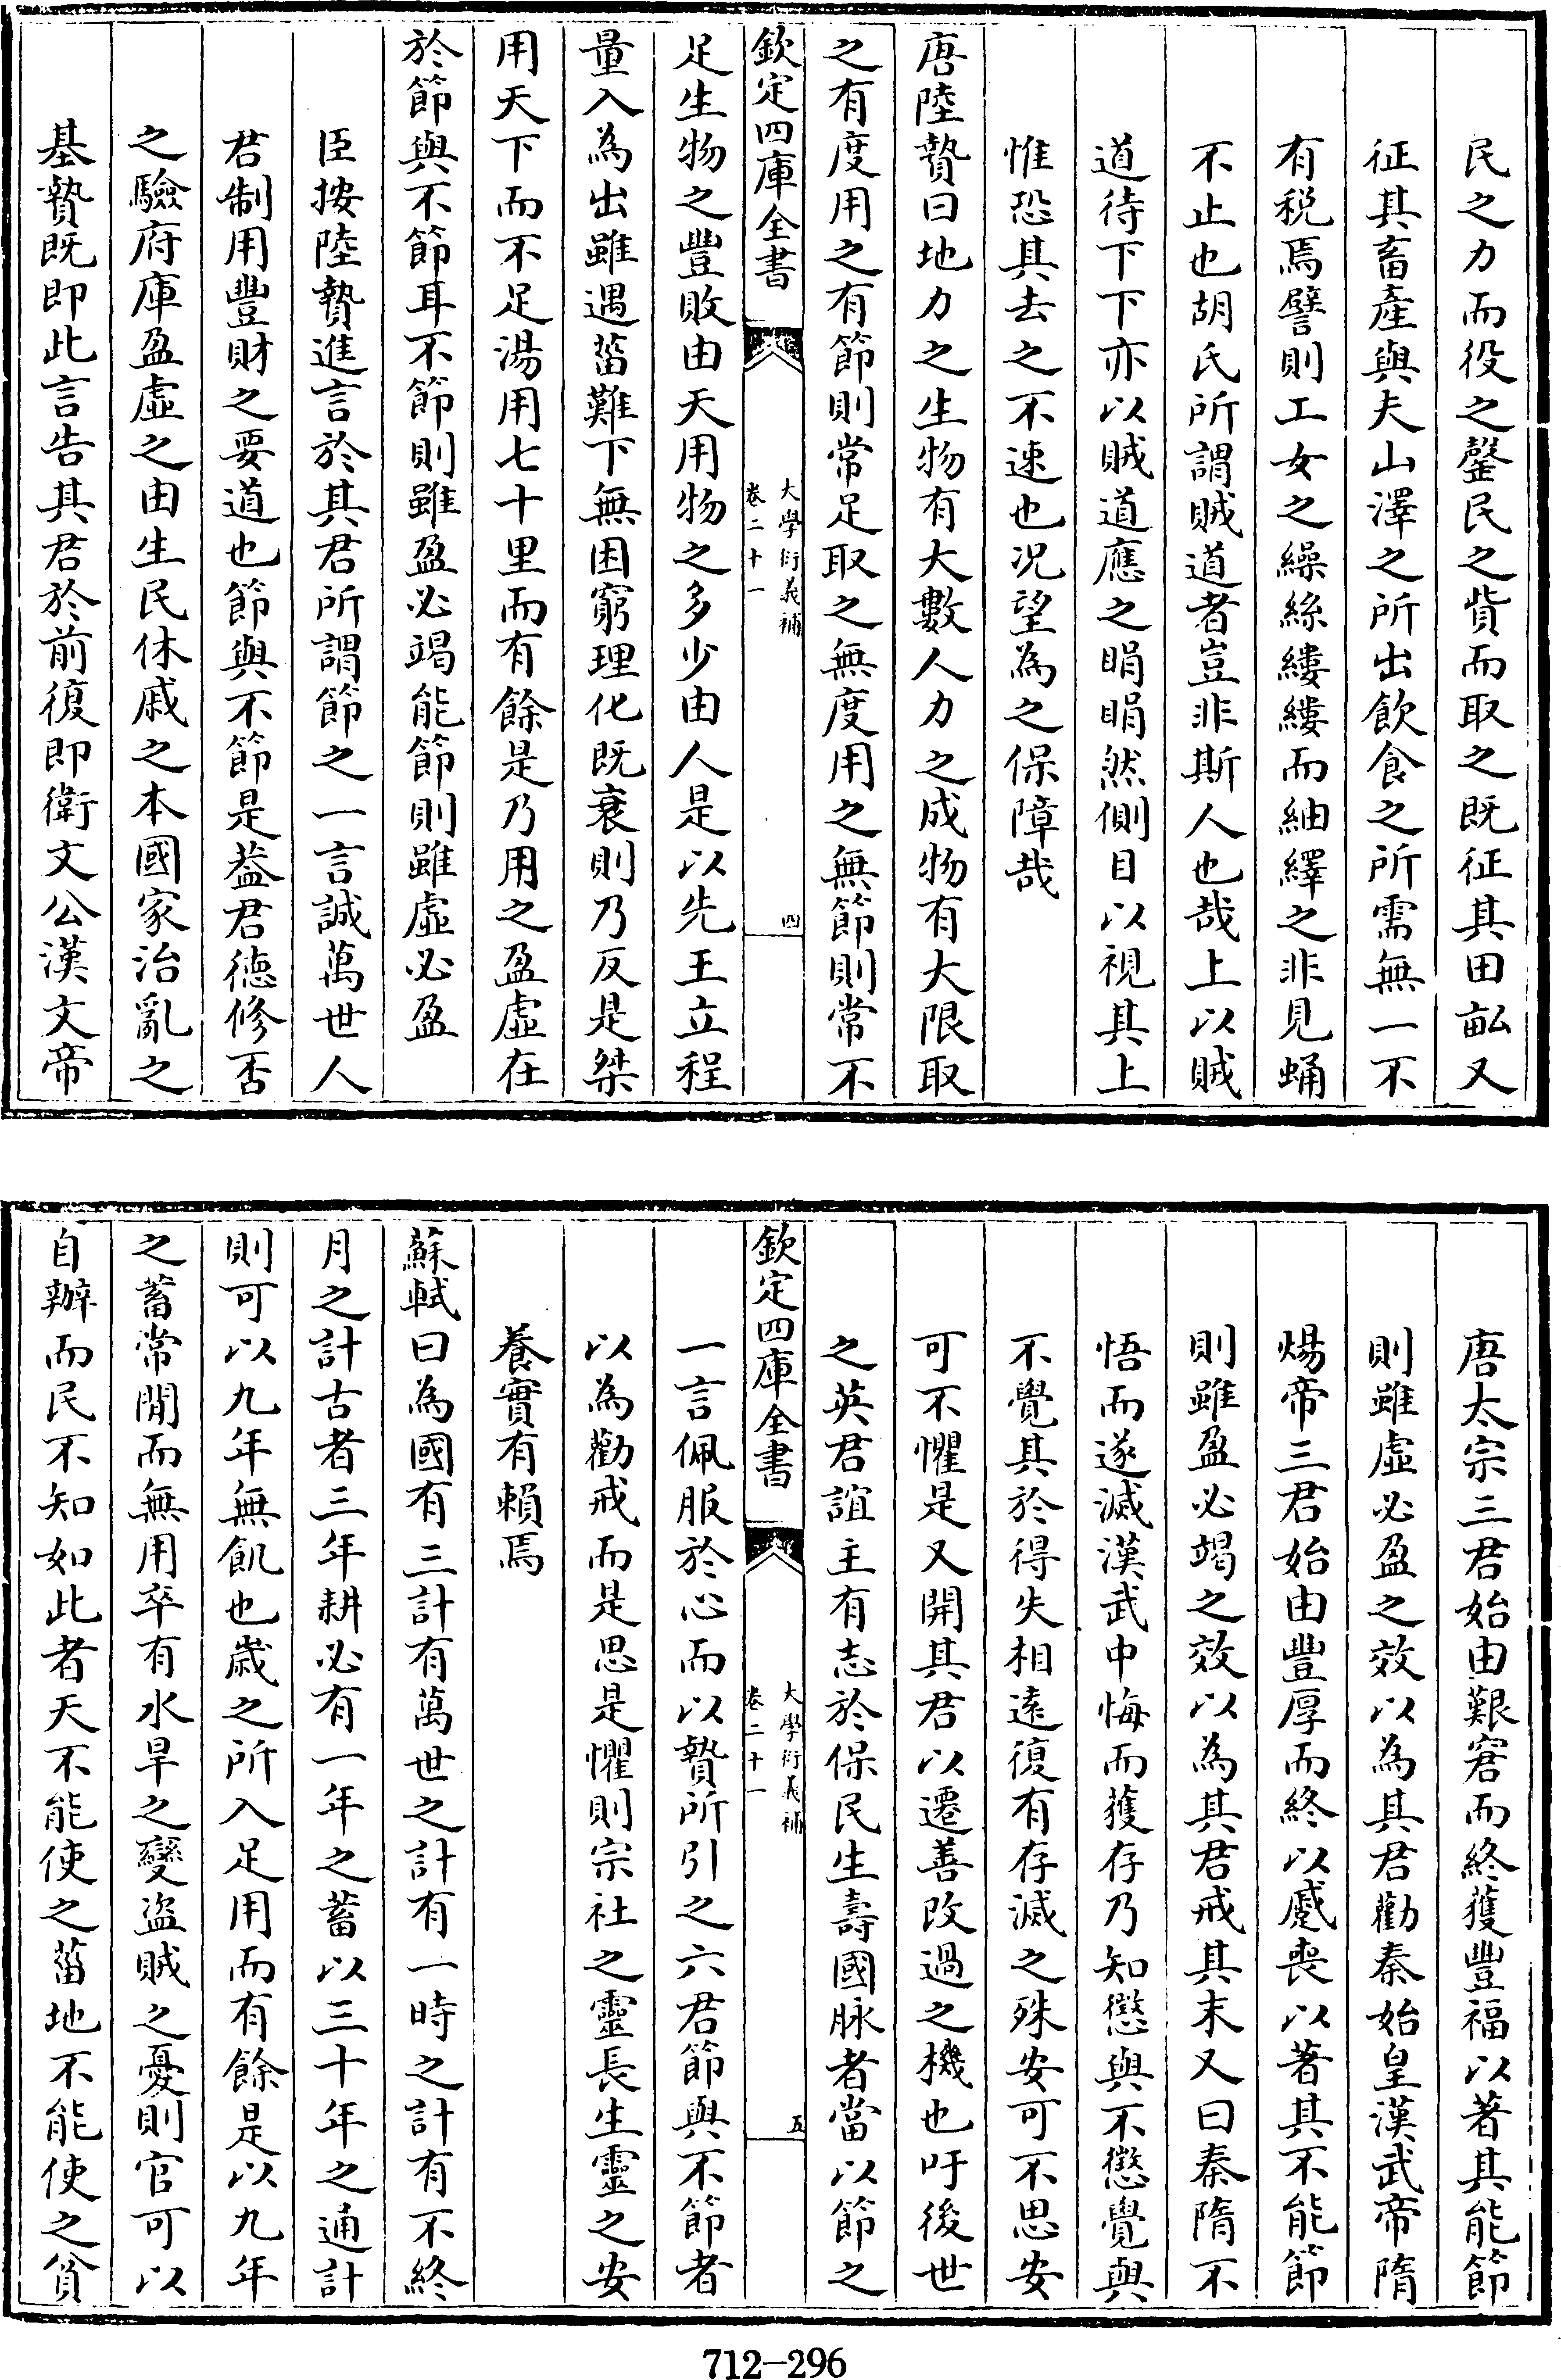 民之力而役之罄民之貲而取之既征其田畝又
征其畜產與夫山澤之所出飲食之所需無一不
有税焉譬則工女之繰絲縷縷而紬繹之非見蛹
不止也胡氏所謂賊道者豈非斯人也哉上以賊
道待下下亦以賊道應之睊睊然側目以視其上
惟恐其去之不速也况望為之保障哉
唐陸贄曰地力之生物有大數人力之成物有大限取
之有度用之有節則常足取之無度用之無節則常不
欽定四庫全書
大學衍義補
卷二十一
四
足生物之豐敗由天用物之多少由人是以先王立程
量入為出雖遇菑難下無困窮理化既衰則乃反是桀
用天下而不足湯用七十里而有餘是乃用之盈虛在
於節與不節耳不節則雖盈必竭能節則雖虛必盈
臣按陸贄進言於其君所謂節之一言誠萬世人
君制用豐財之要道也節與不節是葢君徳修否
之驗府庫盈虛之由生民休戚之本國家治亂之
基贄既即此言告其君於前復即衛文公漢文帝
唐太宗三君始由艱窘而終獲豐福以著其能節
則雖虛必盈之效以為其君勸秦始皇漢武帝隋
煬帝三君始由豐厚而終以蹙喪以著其不能節
則雖盈必竭之效以為其君戒其末又曰秦隋不
悟而遂滅漢武中悔而獲存乃知懲與不懲覺與
不覺其於得失相遠復有存滅之殊安可不思安
可不懼是又開其君以遷善改過之機也吁後世
之英君誼主有志於保民生壽國脉者當以節之
欽定四庫全書
大學衍義補
卷二十一
五
一言佩服於心而以贄所引之六君節與不節者
以為勸戒而是思是懼則宗社之靈長生靈之安
養實有賴焉
蘇軾曰為國有三計有萬世之計有一時之計有不終
月之計古者三年耕必有一年之蓄以三十年之通計
則可以九年無飢也歲之所入足用而有餘是以九年
之蓄常閒而無用卒有水旱之變盜賊之憂則官可以
自辦而民不知如此者天不能使之菑地不能使之貧
712-296